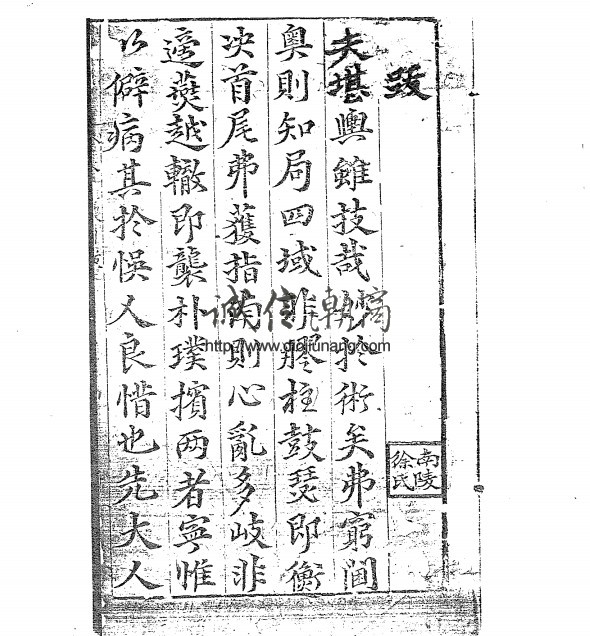 跋
夫堪輿雖技哉於術矣弗窮閫
奧則知局四域非膠柱鼓瑟即衡
决首尾弗蒦指南則心亂多岐非
適燕越轍即襲朴璞擯两者寧惟
以僻病其於悞人良惜也先大人
南陵
徐氏
http://www.qiqiunang.com